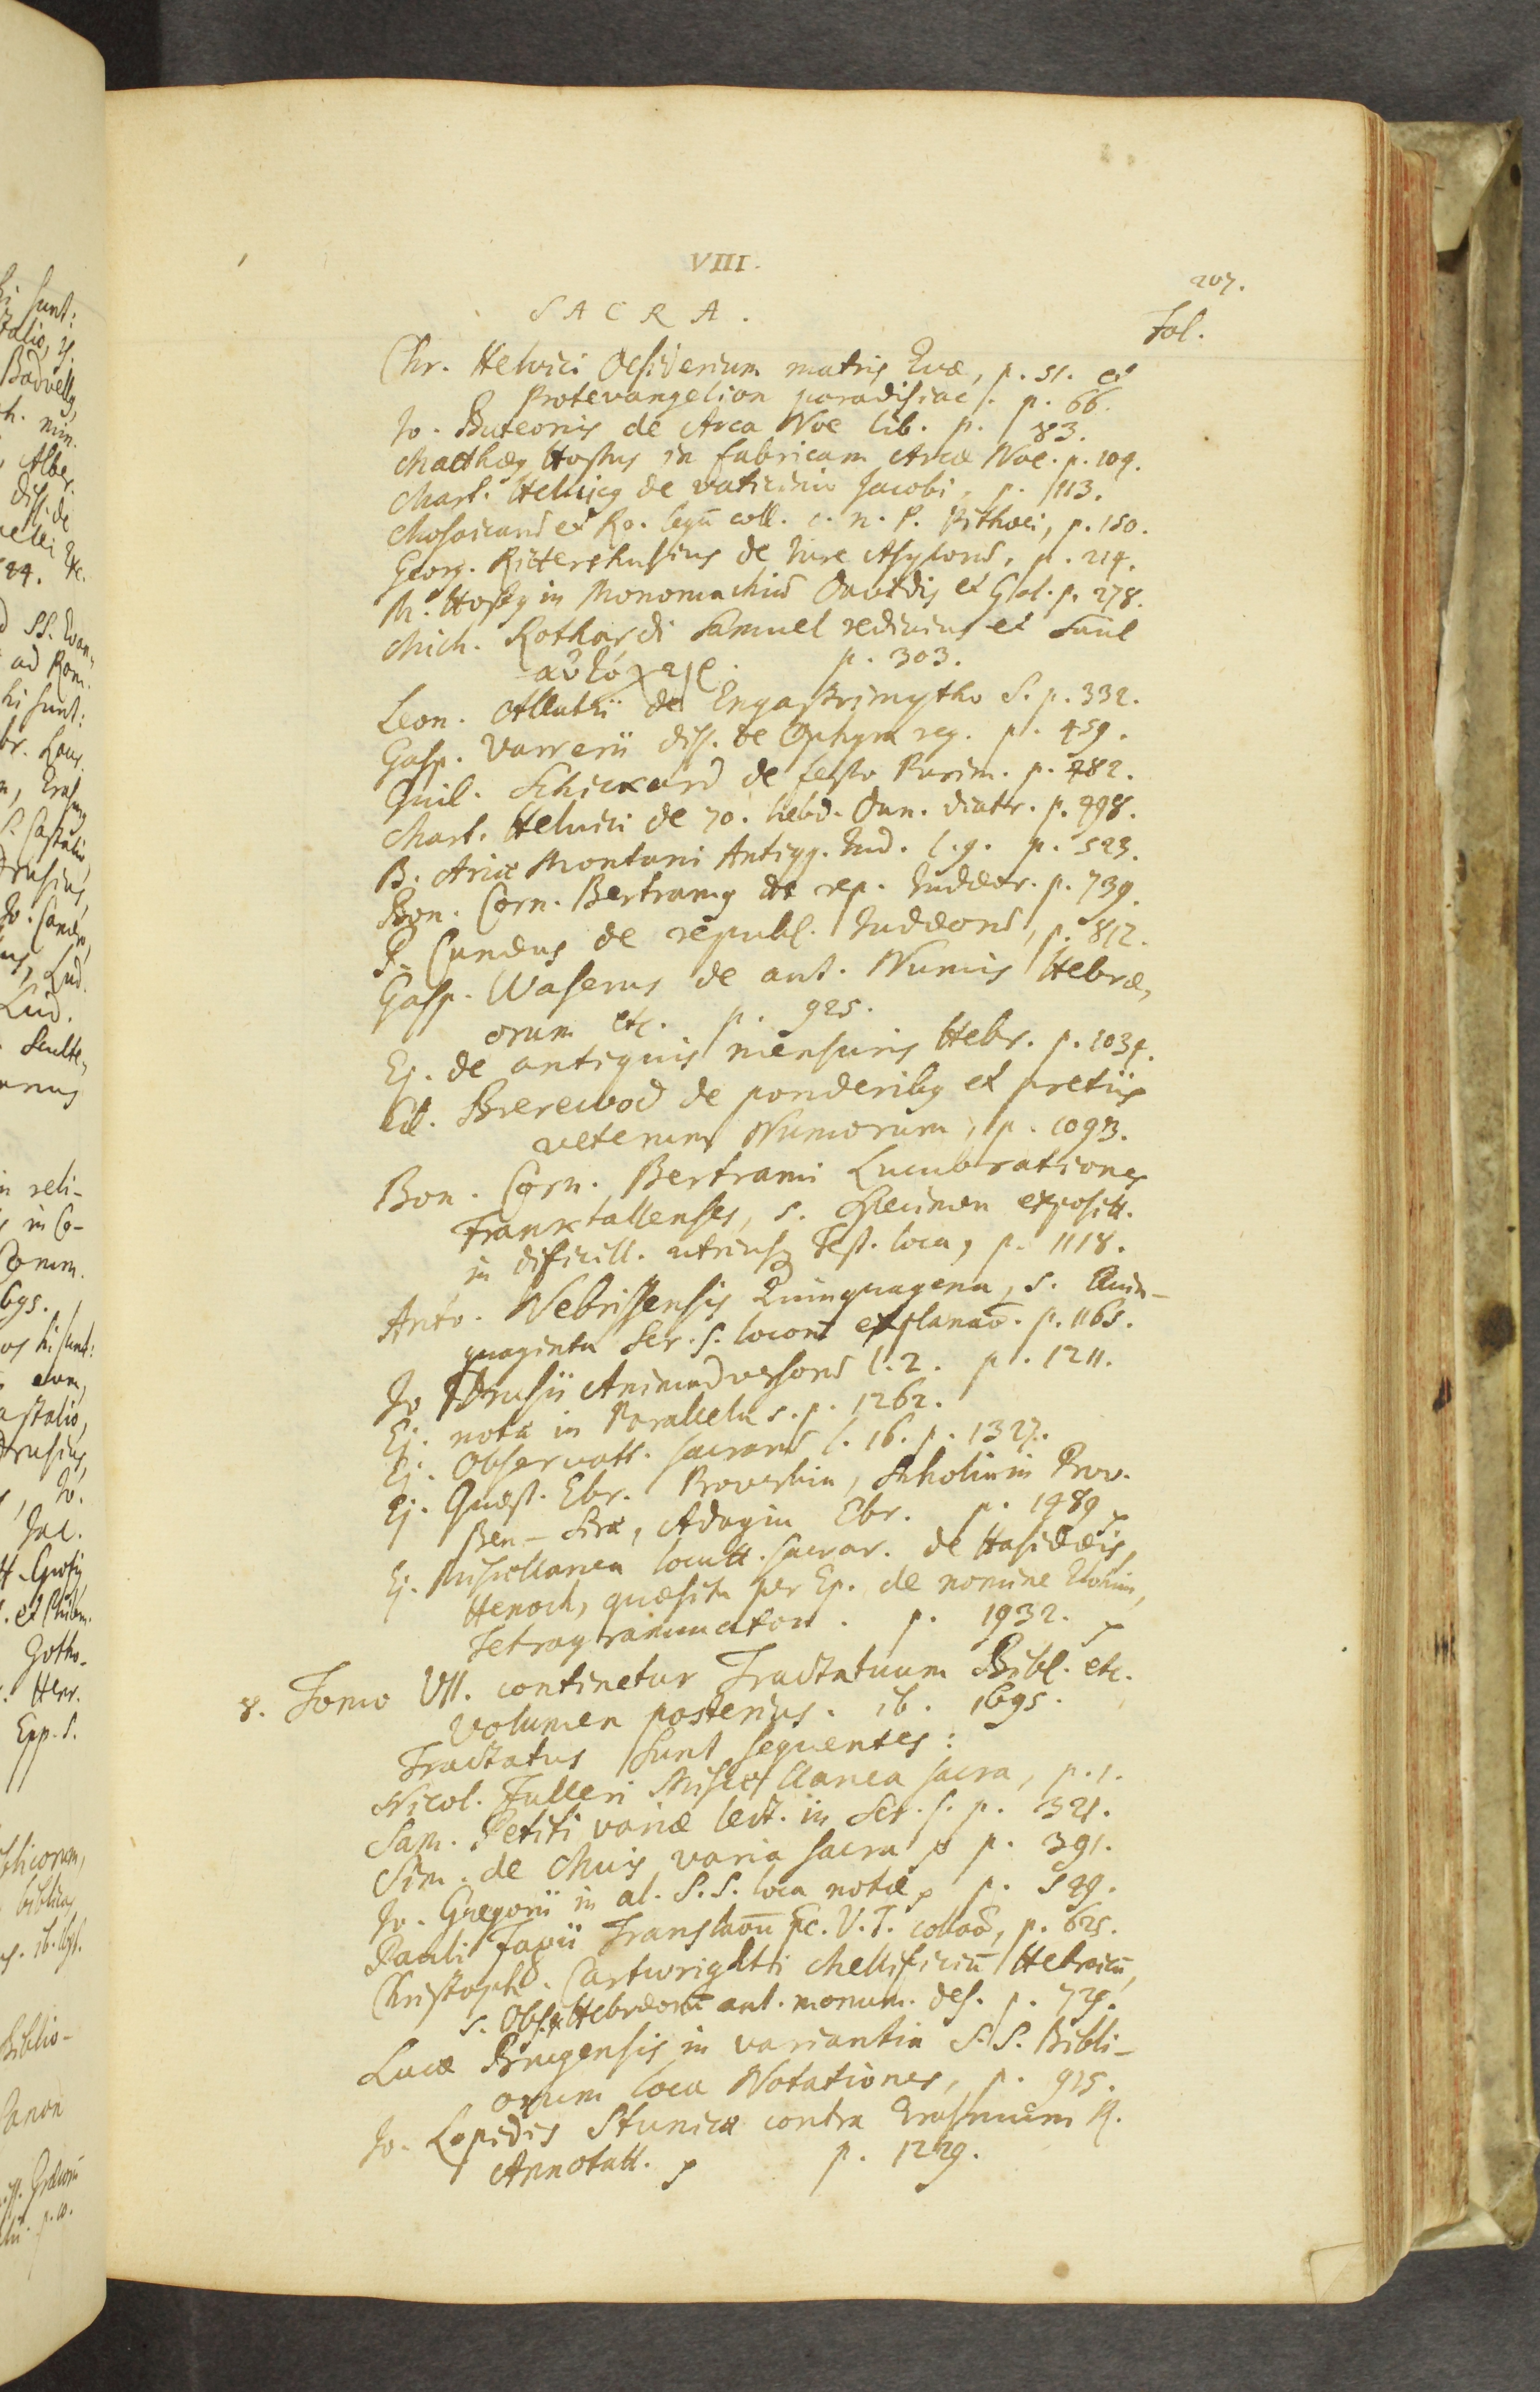 VIII.
207.
SACRA.
Fol.
Chr. Helvici Desiderium matris Evæ, p. 51. et
Protevangelion paradisiac. p. 66.
Jo. Buteonis de Arca Noe lib. p. 83.
Matthæus Hostus in fabricam Arcæ Noe. p. 109.
Mart. Helvicus de vaticinio Jacobi, p. 113.
Mosaicarum et Ro. legū coll. c. n. P. Pithœi, p. 180.
Georg. Rittershusius de Jure Asylorum, p. 214.
M. Hostus in Monomachiam Davidis et Gol. p. 278.
Mich. Rothardi Samuel redivivus et Saul
αὐτόχειρ. p. 303.
Leon. Allatii de Engastrimytho S. p. 332.
Gasp. Varrerii diss. de Ophyra reg. p. 459.
Guil. Schickard de festo Purim. p. 482.
Mart. Helvici de 70. hebd. Dan. diatr. p. 498.
B. Ariæ Montani Antiqq. Jud. l. 9. p. 523.
Bon. Corn. Bertramus de rep. Judæor. p. 739.
P. Cunæus de republ. Judæorum, p. 812.
Gasp. Waserus de ant. Numis Hebræ-
orum etc. p. 925.
Ej. de antiquis mensuris Hebr. p. 1034.
Ed. Brerewod de ponderibus et pretiis
veterum Numorum, p. 1093.
Bon. Corn. Bertrami Lucubrationes
Franktallenses, s. specimen exposit.
in dificill. utriusque Test. loca, p. 1118.
Anto. Nebrissensis Quinquagena, s. Quin-
quaginta Scr. S. locorum explanaō. p. 1165.
Jo Drusii Animadversorum l. 2. p. 1211.
Ej. notæ in Parallela s. p. 1262.
Ej. Observatt. sacrarum l. 16. p. 1327.
Ej. Quæst. Ebr. Proverbia, Scholia in Prov.
Ben-Siræ, Adagia Ebr. p. 1489
Ej. Miscellanea locutt. sacrar. de Hasidæis,
Henoch, quæsita per Ep. de nomine Elohim,
Tetragrammaton. p. 1932.
8. Tomo VII. continetur Tractatuum Bibl. etc.
Volumen posterius. ib. 1695.
Tractatus sunt sequentes:
Nicol. Fulleri Miscellanea sacra, p. 1.
Sam. Petiti variæ lect. in Scr. S. p. 321.
Sim. de Muis varia sacra p. 391.
Jo. Gregorii in al. S. S. loca notæ, p. 549.
Pauli Fagii Translaōū pc. V. T. collaō, p. 625.
Christoph. Cartwrighti Mellificiū Hebraicū,
s. Obs. ex Hebræorū ant. monum. des. p. 729.
Lucæ Brugensis in variantia S. S. Bibli-
orum loca Notationes, p. 915.
Jo. Lopidis Stunica contra Erasmum R.
Annotatt. p. 1229.